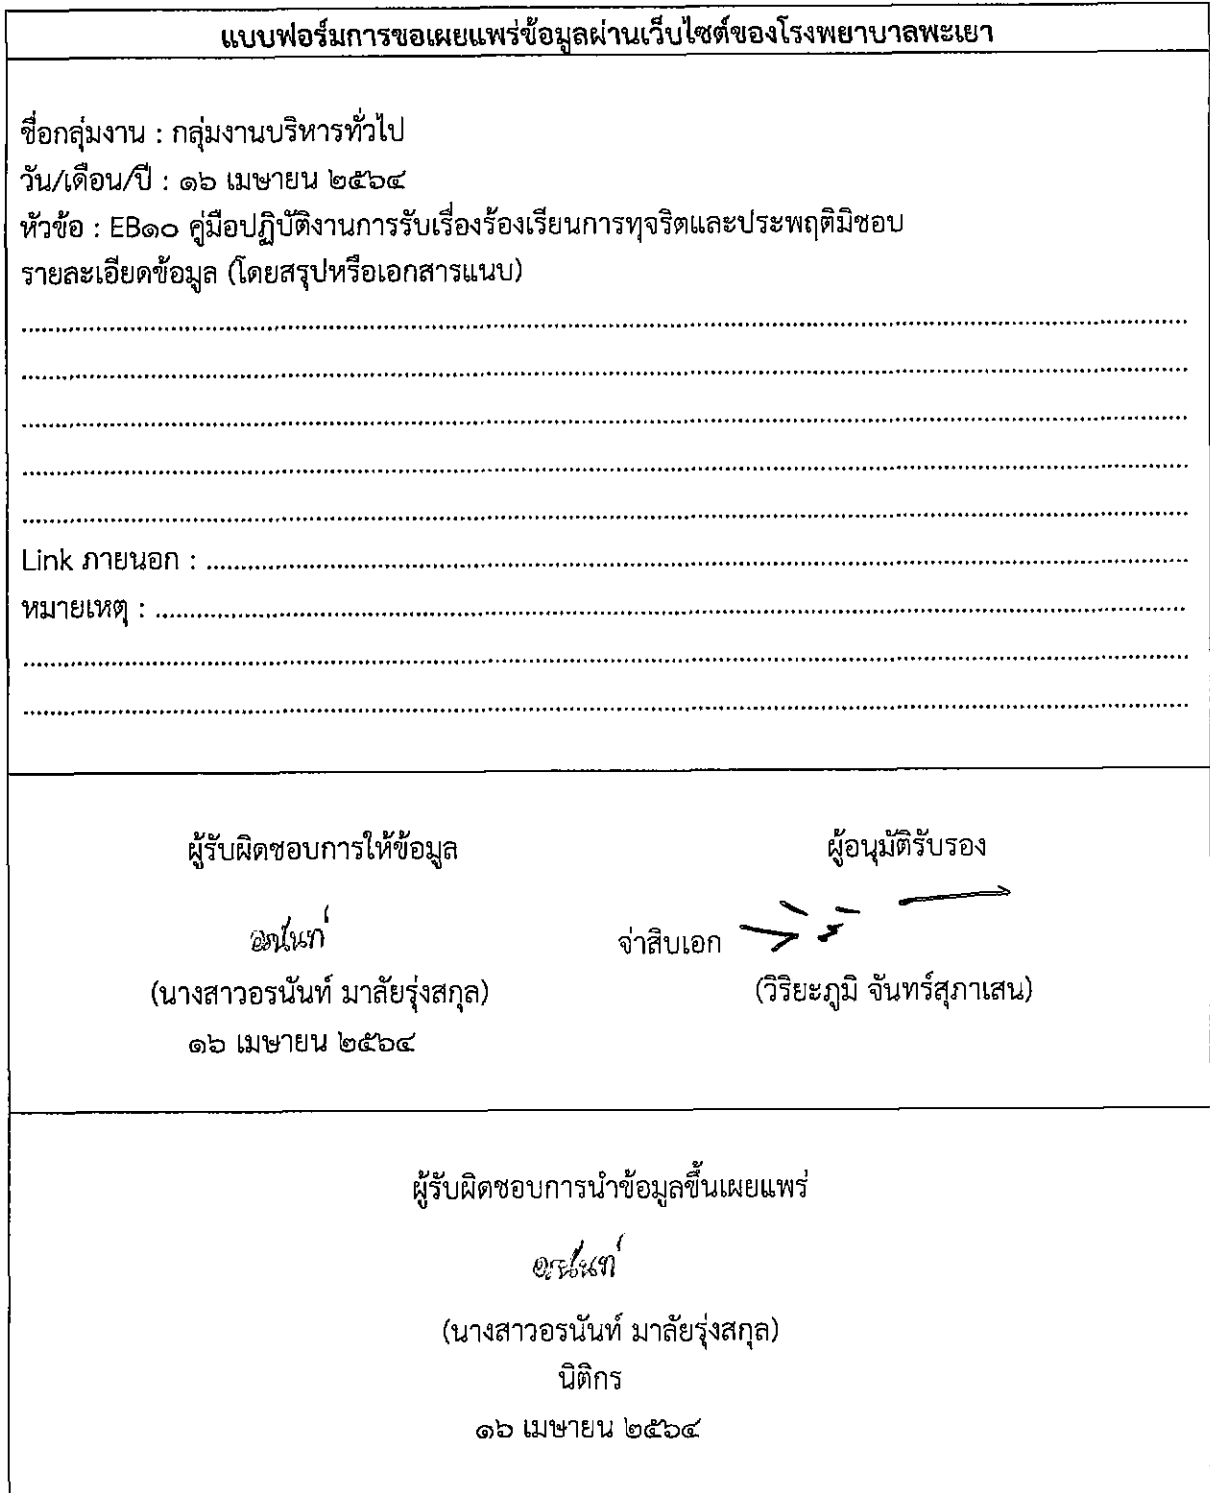 แบบฟอร์มการขอเผยแพร่ข้อมูลผ่านเว็บไซต์ของโรงพยาบาลพะเยา
ชื่อกลุ่มงาน : กลุ่มงานบริหารทั่วไป
วัน/เดือน/ปี : ๑๖ เมษายน ๒๕๖๔
หัวข้อ : EB๑๐ คู่มือปฏิบัติงานการรับเรื่องร้องเรียนการทุจริตและประพฤติมิชอบ
รายละเอียดข้อมูล (โดยสรุปหรือเอกสารแนบ)
Link ภายนอก :
หมายเหตุ :
ผู้รับผิดชอบการให้ข้อมูล
ผู้อนุมัติรับรอง
อรนันท์
จ่าสิบเอก
(นางสาวอรนันท์ มาลัยรุ่งสกุล)
(วิริยะภูมิ จันทร์สุภาเสน)
๑๖ เมษายน ๒๕๖๔
ผู้รับผิดชอบการนำข้อมูลขึ้นเผยแพร่
อรนันท์
(นางสาวอรนันท์ มาลัยรุ่งสกุล)
นิติกร
๑๖ เมษายน ๒๕๖๔